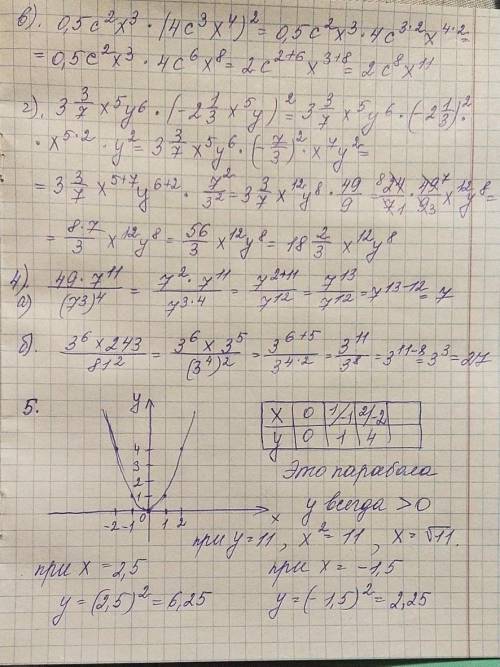 в). 0,5c²x³ · (4c³x⁴)² = 0,5c²x³ · 4c^{3·2}x^{4·2} =
= 0,5c²x³ · 4c⁶x⁸ = 2c^{2+6}x^{3+8} = 2c⁸x¹¹
г). 3 3/7 x⁵y⁶ · (-2 1/3 x⁵y)² = 3 3/7 x⁵y⁶ · (-2 1/3)² ·
· x^{5·2} · y² = 3 3/7 x⁵y⁶ · (-7/3)² · x⁷y² =
= 3 3/7 x^{5+7}y^{6+2} · 7²/3² = 3 3/7 x¹²y⁸ · 49/9 = ⁸24/7₁ · 49⁷/9₃ x¹²y⁸ =
= 8·7/3 x¹²y⁸ = 56/3 x¹²y⁸ = 18 2/3 x¹²y⁸
4). а) 49·7¹¹/(7³)⁴ = 7²·7¹¹/7^{3·4} = 7^{2+11}/7¹² = 7¹³/7¹² = 7^{13-12} = 7
б). 3⁶×243/81² = 3⁶×3⁵/(3⁴)² = 3^{6+5}/3^{4·2} = 3¹¹/3⁸ = 3^{11-8} = 3³ = 27
5.
y
4
3
2
1
-2 -1 0 1 2
x
x 0 1/-1 2/-2
y 0 1 4
Это парабола
y всегда > 0
при y = 11, x² = 11, x = √11.
при x = 2,5
y = (2,5)² = 6,25
при x = -1,5
y = (-1,5)² = 2,25